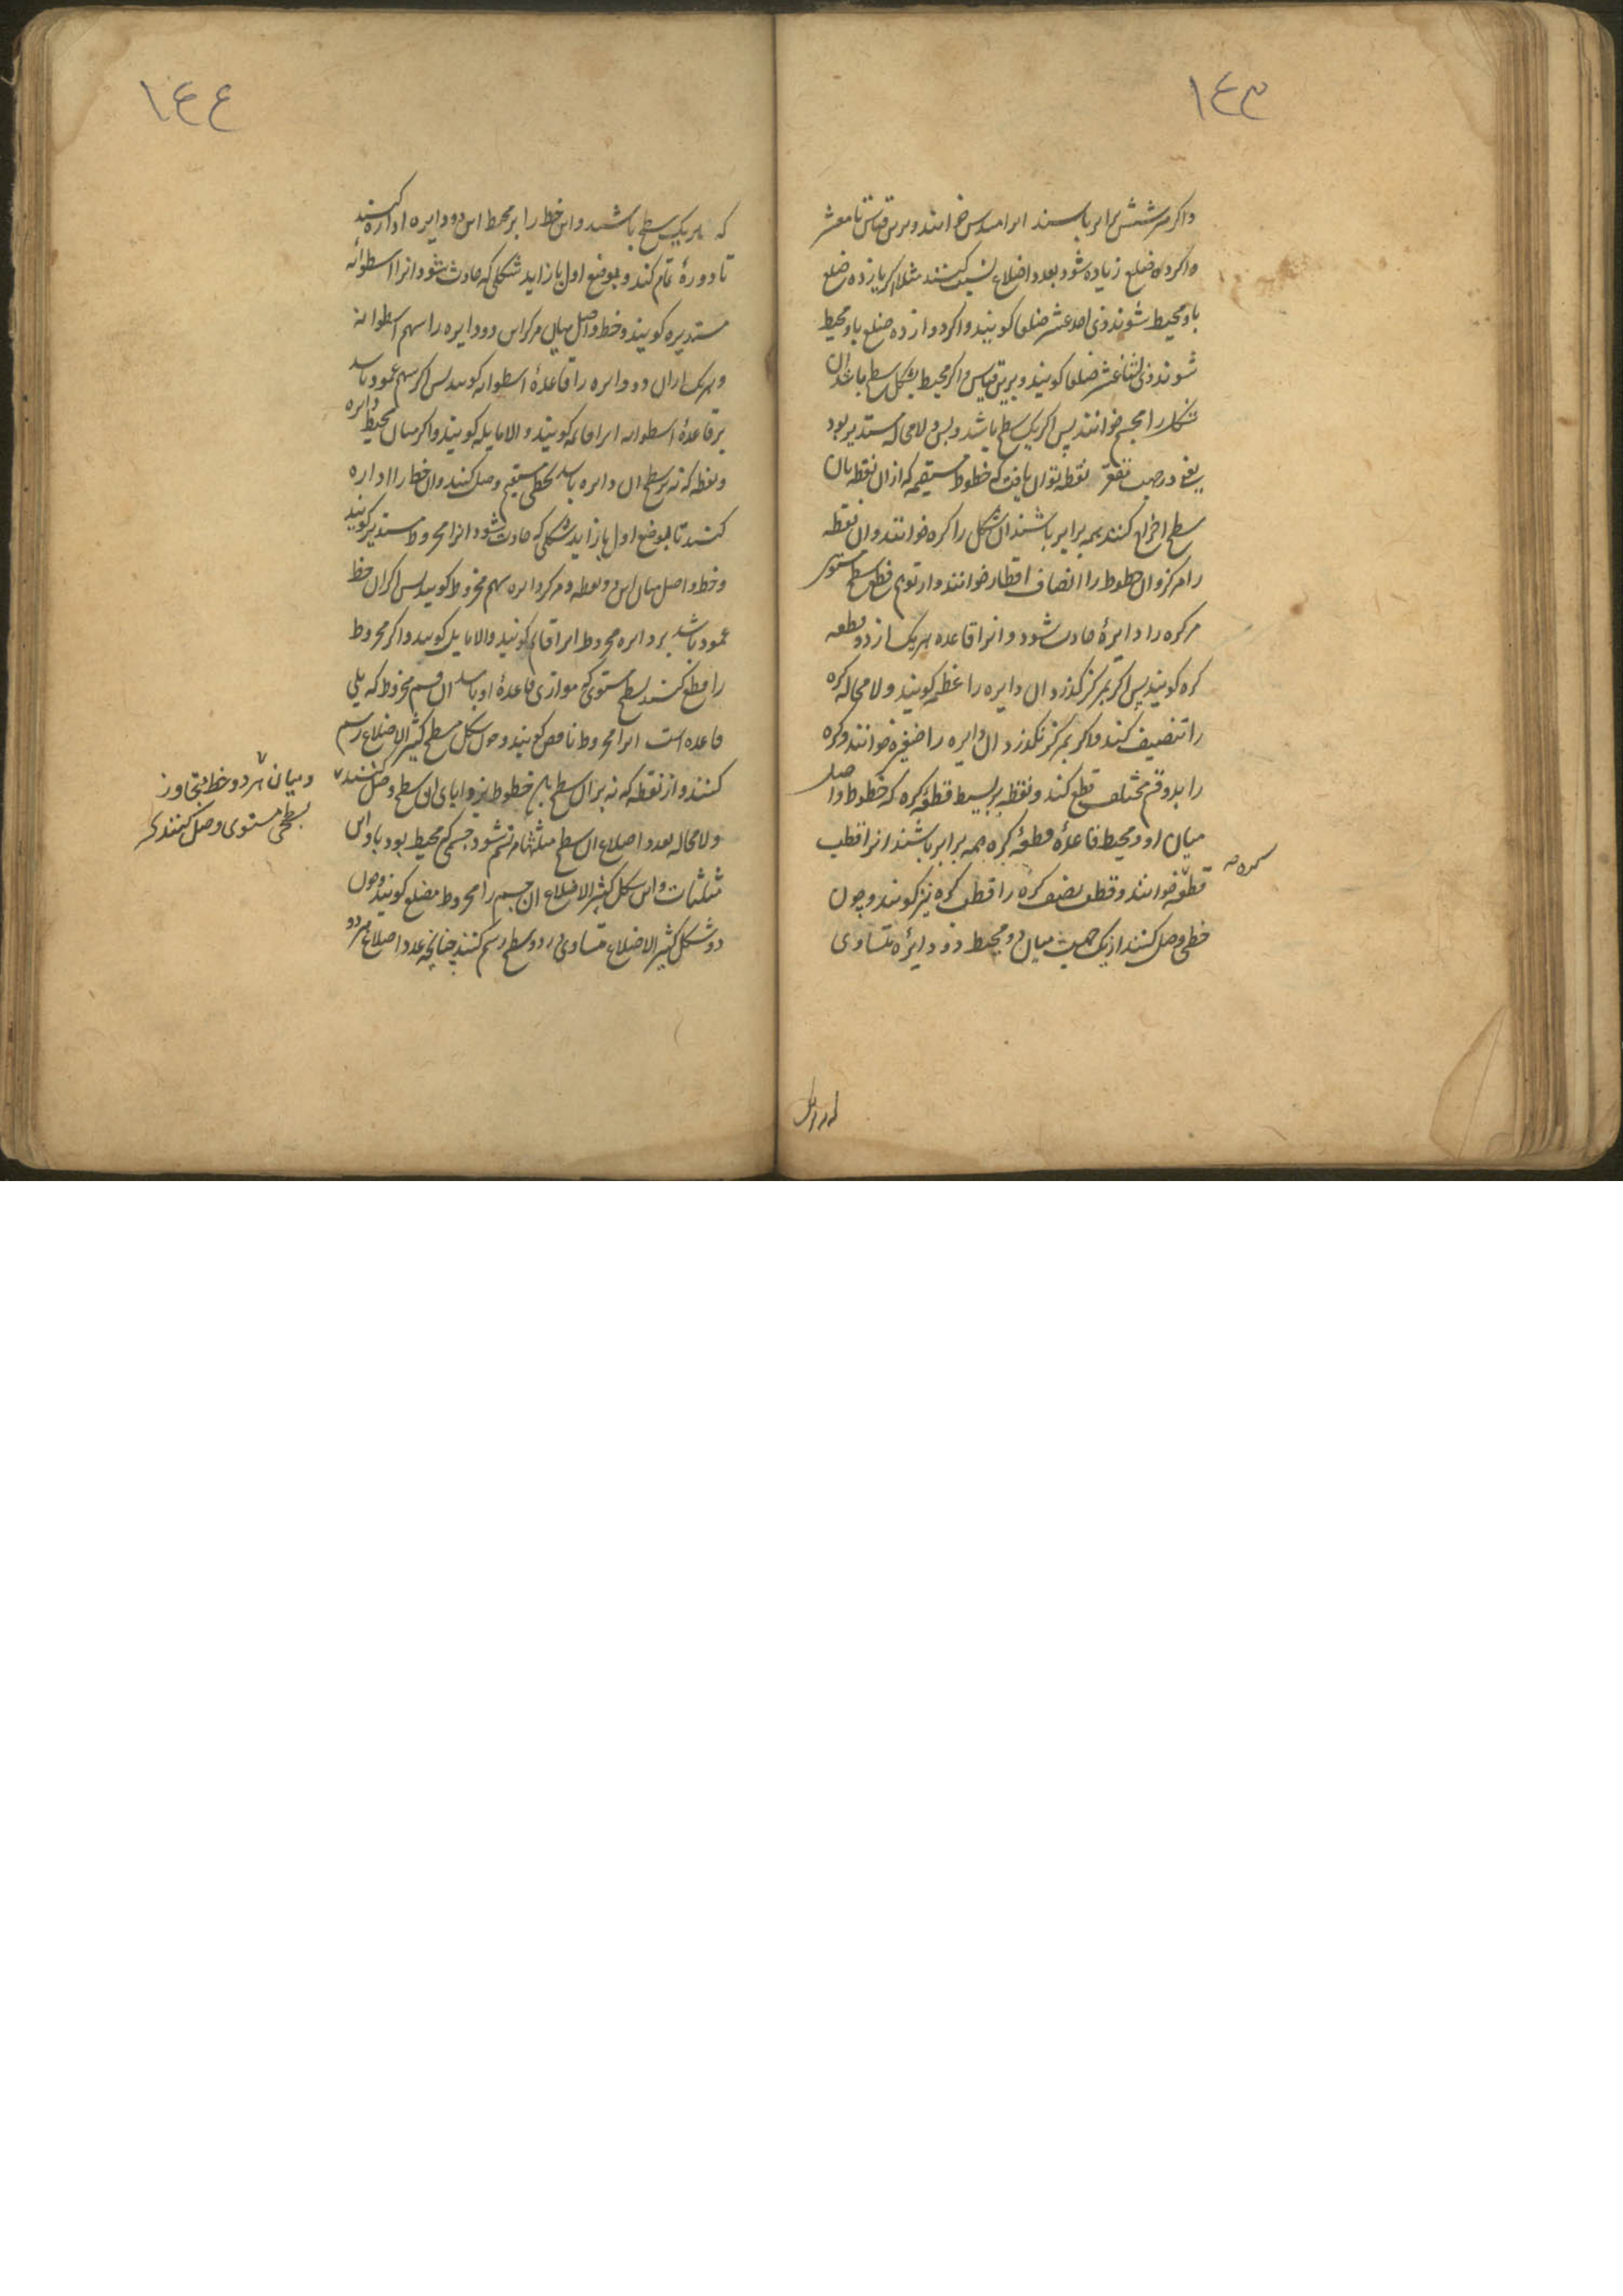 ١٤٣
واکر هر شش برابر باشند انرا مسدس خوانند و برین قیاس تا معشر
واکر از ده ضلع زیاده شود بعدد اضلاع نسبت کنند مثلا اکر یازده ضلع
باو محیط شوند ذی احد عشر ضلعا کویند واکر دوازده ضلع باو محیط
شوند ذی اثنا عشر ضلعا کویند و برین قیاس واکر محیط بشکل سطح باشد ان
شکل را مجسم خوانند پس اکر یک سطح باشد و بس و لامحاله مستدیر بود
یعنی در جهت تقعر نقطه توان یافت که خطوط مستقیمه که از ان نقطه بان
سطح اخراج کنند همه برابر باشند ان شکل را کره خوانند و ان نقطه
را مرکز و ان خطوط را انصاف اقطار خوانند و از توهم قطع سطح مستوی
مر کره را دایرهٔ حادث شود و انرا قاعده هر یک از دو قطعه
کره کویند پس اکر بمرکز کذرد ان دایره را عظیمه کویند و لامحاله کره
را تنصیف کند واکر بمرکز نکذرد ان دایره را صغیره خوانند و کره
را بدو قسم مختلف قطع کند و نقطه بر بسیط قطعهٔ کره که خطوط واصل
میان او و محیط قاعدهٔ قطعهٔ کره همه برابر باشند انرا قطب
قطعه خوانند و قطب نصف کره را قطب کره نیز کویند و چون
کره صه
خطی وصل کنند از یک جهت میان دو محیط دو دایرهٔ متساوی
١٤٤
که بر یک سطح باشند و این خط را بر محیط این دو دایره اداره کنند
تا دورهٔ تمام کند و بموضع اول باز اید شکلی که حادث شود انرا اسطوانه
مستدیره کویند و خط واصل میان مرکز این دو دایره را سهم اسطوانه
و هر یک از ان دو دایره را قاعدهٔ اسطوانه کویند پس اکر سهم عمود باشد
بر قاعدهٔ اسطوانه انرا قائمه کویند و الا مایله کویند واکر میان محیط دایره
و نقطه که نه بر سطح ان دایره باشد بخطی مستقیم وصل کنند و ان خط را اداره
کنند تا بموضع اول باز اید شکلی که حادث شود انرا مخروط مستدیر کویند
و خط واصل میان این نقطه و مرکز دایره سهم مخروط کویند پس اکر ان خط
عمود باشد بر دایره مخروط انرا قایم کویند و الا مایل کویند واکر مخروط
را قطع کنند بسطح مستوی که موازی قاعدهٔ او باشد ان قسم مخروط که یلی
قاعده است انرا مخروط ناقص کویند و چون شکل مسطح کثیر الاضلاع رسم
کنند و از نقطه که نه بر ان سطح باشد خطوط بزوایای ان سطح وصل کنند
ولامحاله بعدد اضلاع ان سطح مثلثها مرتسم شود جسمی که محیط بود باو این
مثلثات و این شکل کثیر الاضلاع ان جسم را مخروط مضلع کویند و چون
دو شکل کثیر الاضلاع متساوی در دو سطح رسم کنند چنانچه عدد اضلاع هر دو
و میان هر دو خط متجاور
بسطحی مستوی وصل کنند